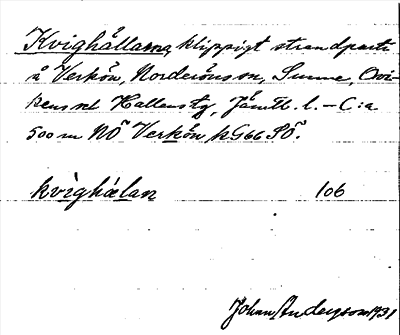 Kvighällarna, klippigt strandparti
å Verkön, Norderönssn, Sunne, Ovi-
kens o Hallens tg, Jämtl. l. – C:a
500 m NÖ Verkön kG66 SÖ.
kvìghælan 106
Johan Anderson 1931